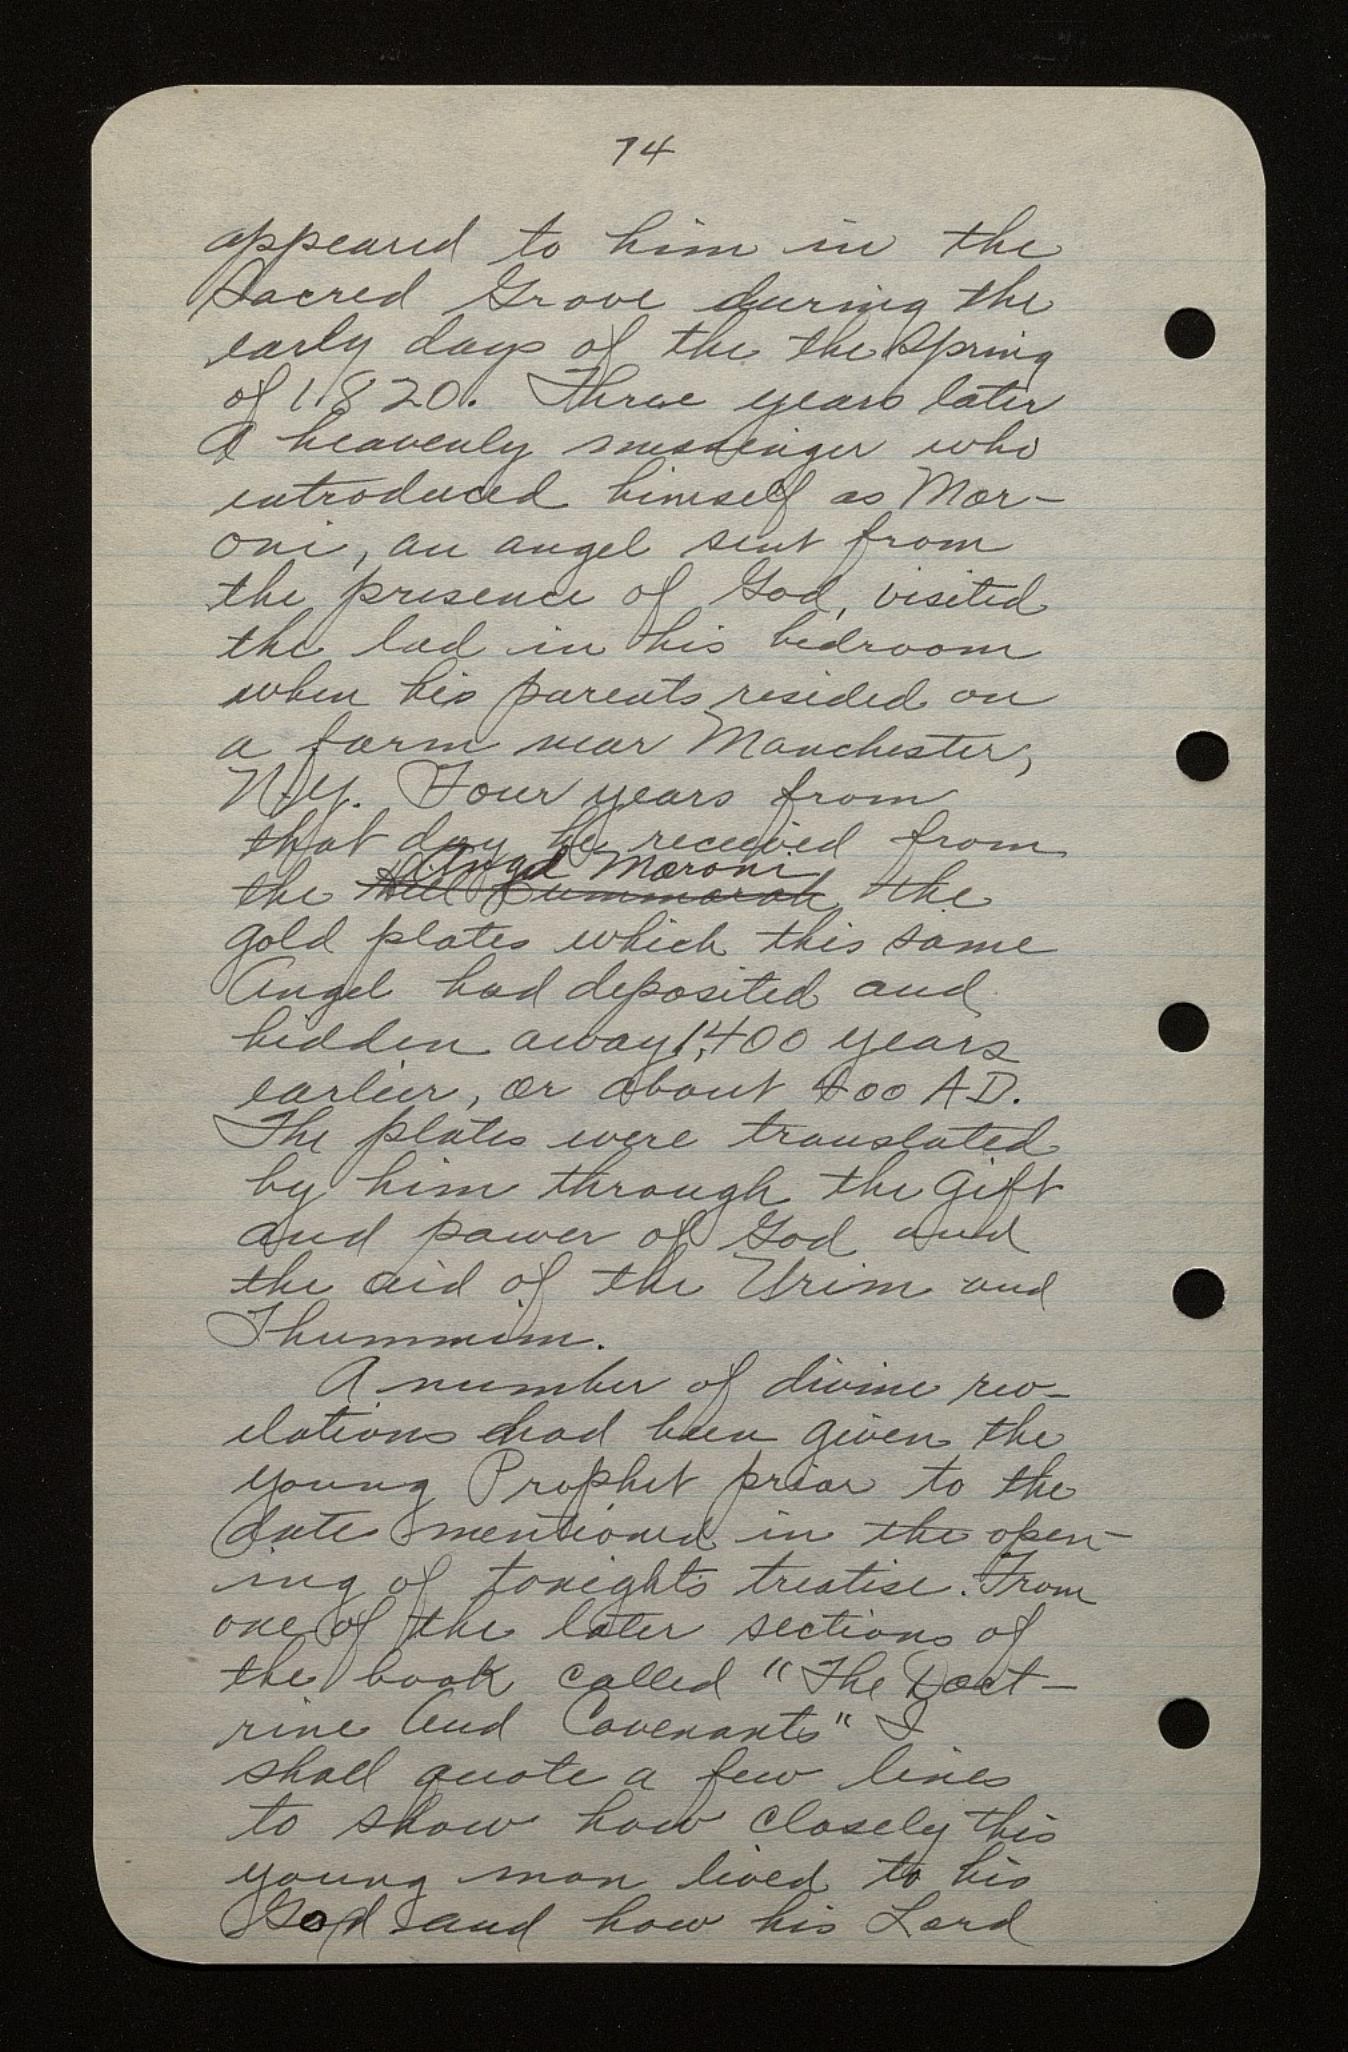 74
appeared to him in the
Sacred Grove during the
early days of the the Spring
of 1820. Three years later
A heavenly messenger who
introduced himself as Mor-
oni, an angel sent from
the presence of God, visited
the lad in his bedroom
when his parents resided on
a farm near Manchester,
N.Y. Four years from
that day he received from
Angel Moroni
the Hill Cummorah the
gold plates which this same
Angel had deposited and
hidden away 1,400 years
earlier, or about 400 A.D.
The plates were translated
by him through the Gift
and power of God and
the aid of the Urim and
Thummim.
A number of divine rev-
elations had been given the
young Prophet prior to the
date mentioned in the open-
ing of tonights treatise. From
one of the later sections of
the book called "The Doct-
rine And Covenants" I
shall quote a few lines
to show how closely this
young man lived to his
God and how his Lord